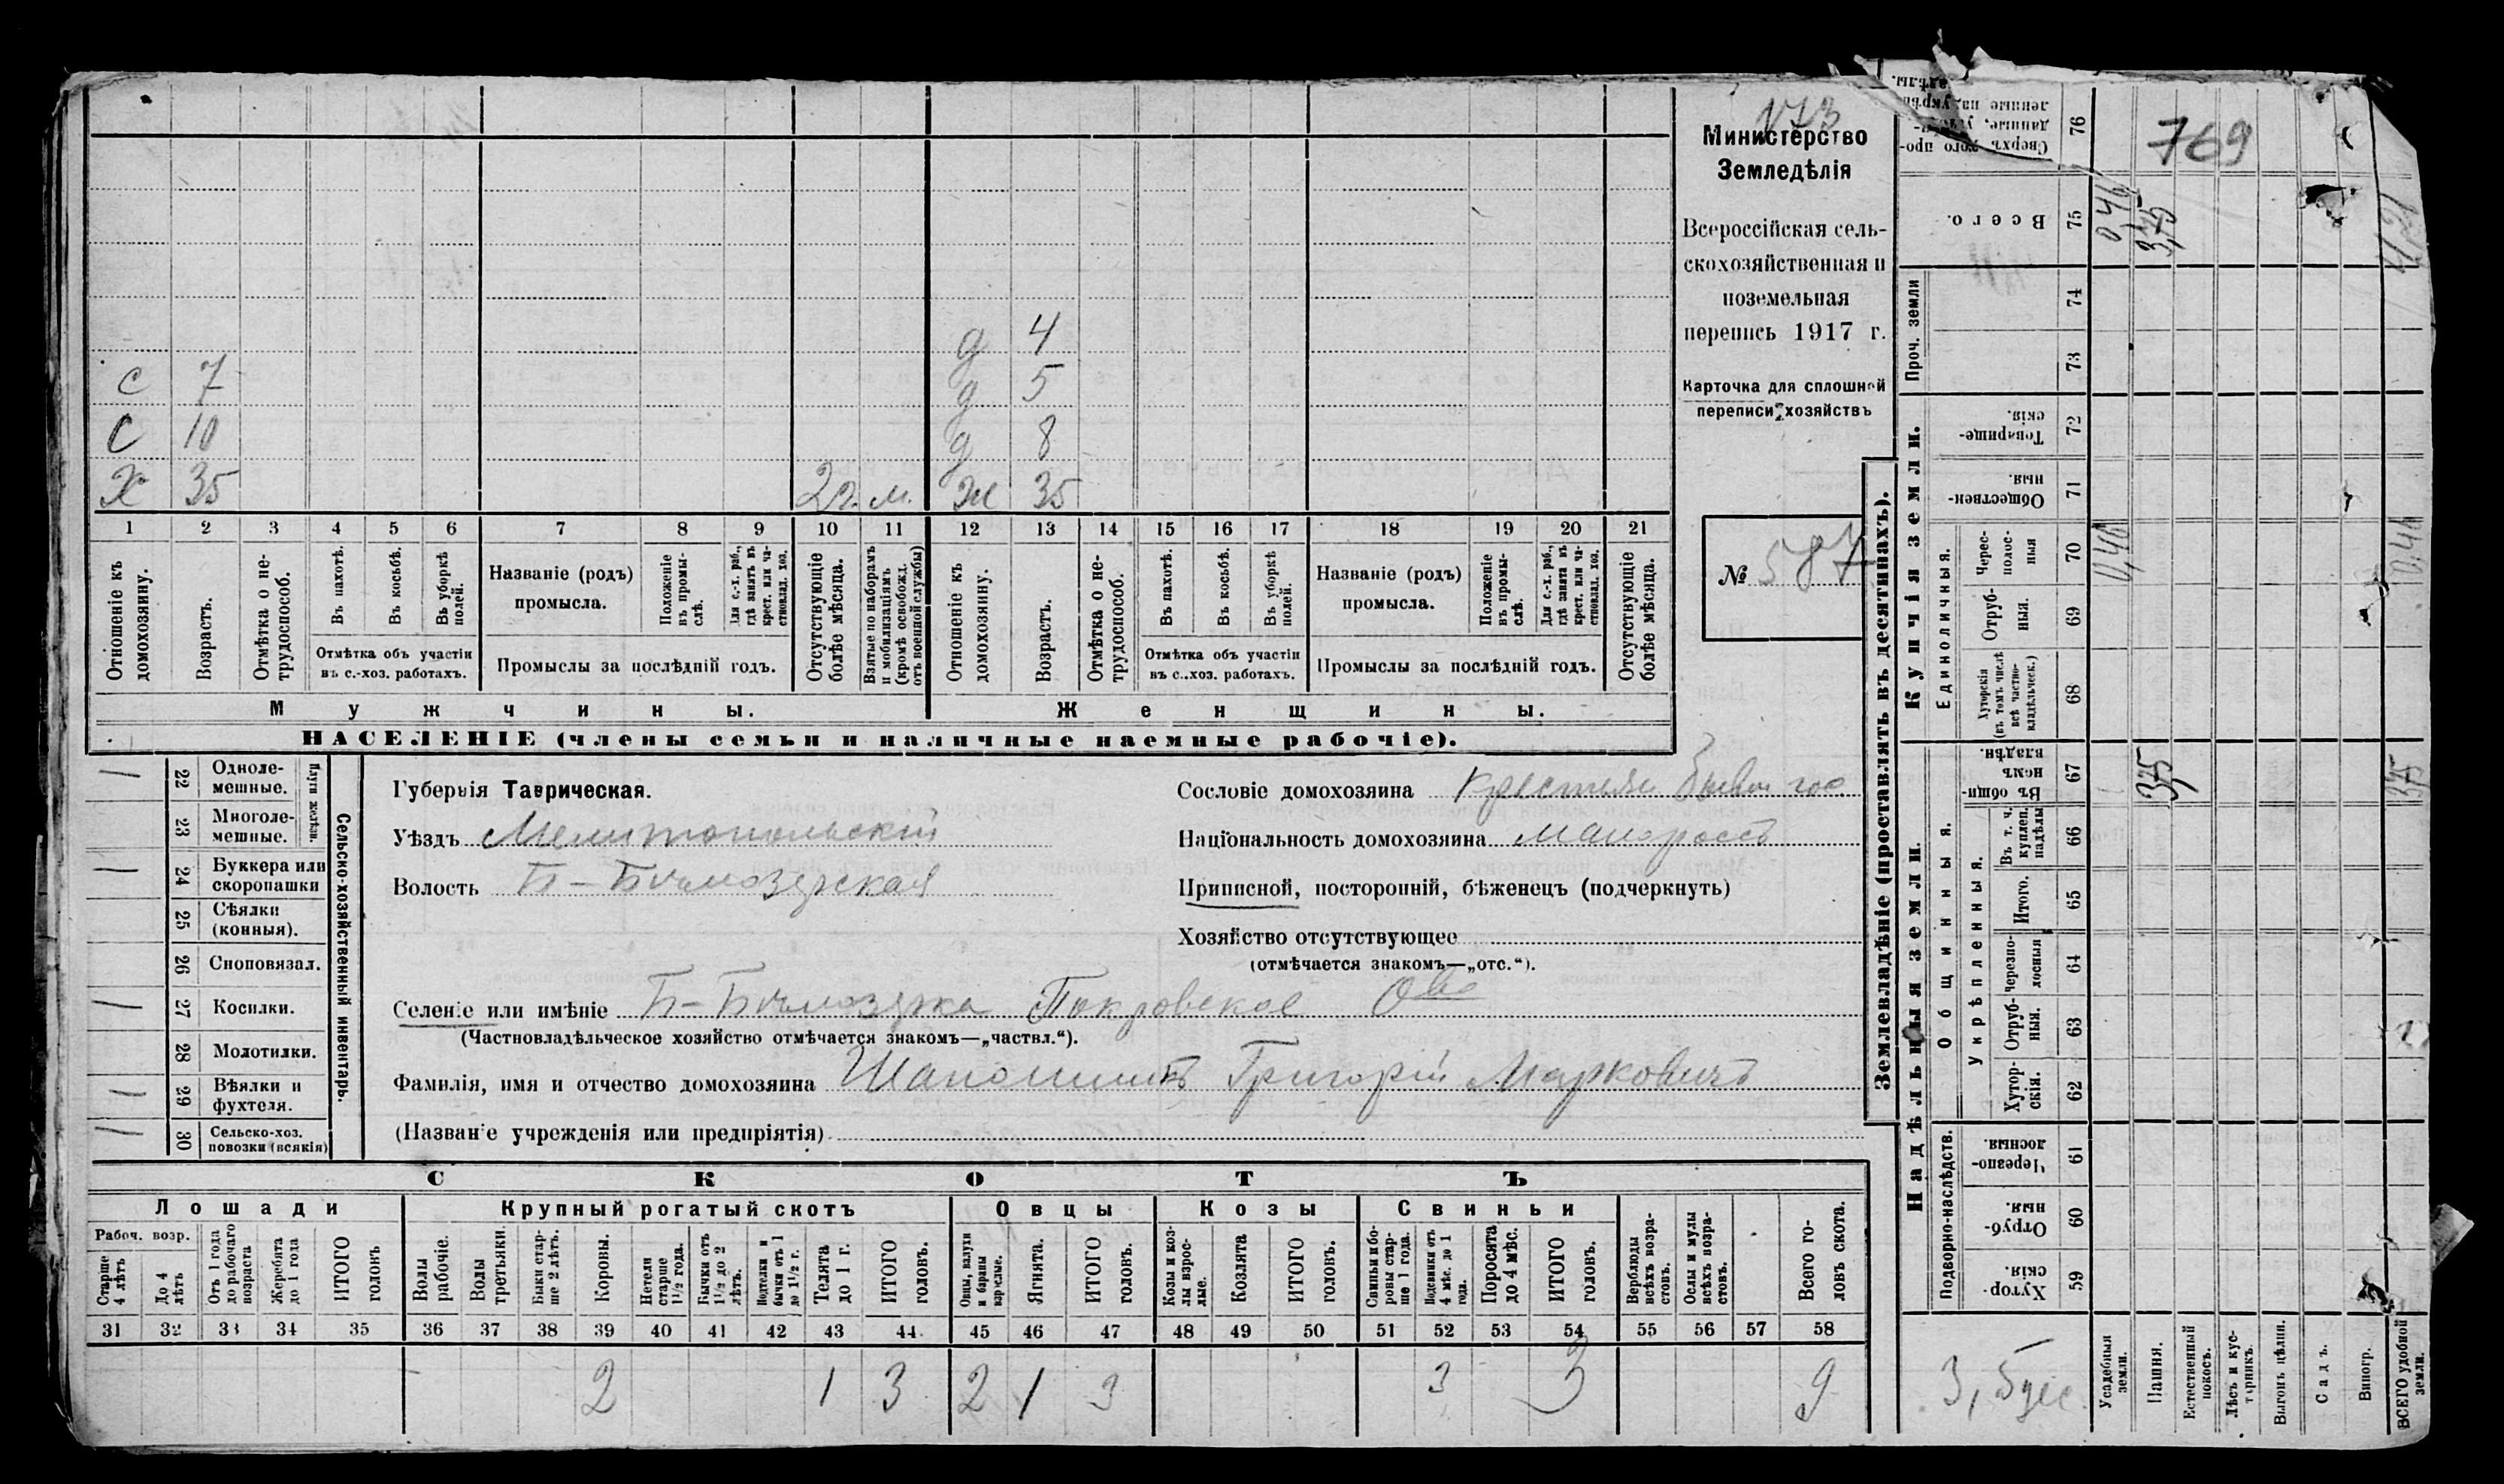 173
Министерство
Земледѣлія
Всероссійская сель-
скохозяйственная и
поземельная
перепись 1917 г.
Карточка для сплошной
переписи хозяйствъ
№ 587
д 4
с 7 д 5
с 10 д 8
х 35 2 г. м. ж 35
1 2 3 4 5 6 7 8 9 10 11 12 13 14 15 16 17 18 19 20 21
Отношеніе къ домохозяину.
Возрастъ.
Отмѣтка о не-трудоспособ.
Въ пахотѣ.
Въ косьбѣ.
Въ уборкѣ полей.
Отмѣтка объ участіи
въ с.-хоз. работахъ.
Названіе (родъ)
промысла.
Положеніе въ промы-слѣ.
Для с.-х. раб., гдѣ занятъ въ крест. или ча-стновлад. хоз.
Промыслы за послѣдній годъ.
Отсутствующіе болѣе мѣсяца.
Взятые по наборамъ и мобилизаціямъ (кромѣ освобожд. отъ военной службы)
Отношеніе къ домохозяину.
Возрастъ.
Отмѣтка о не-трудоспособ.
Въ пахотѣ.
Въ косьбѣ.
Въ уборкѣ полей.
Отмѣтка объ участіи
въ с..хоз. работахъ.
Названіе (родъ)
промысла.
Положеніе въ промы-слѣ.
Для с.-х. раб., гдѣ занята въ крест. или ча-стновлад. хоз.
Промыслы за послѣдній годъ.
Отсутствующіе болѣе мѣсяца.
Мужчины. Женщины.
НАСЕЛЕНІЕ (члены семьи и наличные наемные рабочіе).
Сельско-хозяйственный инвентарь.
Плуги желѣзн.
/ 22 Одноле-мешные.
23 Многоле-мешные.
/ 24 Буккера или скоропашки
25 Сѣялки (конныя).
26 Сноповязал.
/ 27 Косилки.
28 Молотилки.
/ 29 Вѣялки и фухтеля.
/ 30 Сельско-хоз. повозки (всякія)
Губернія Таврическая.
Уѣздъ Мелитопольскій
Волость Б-Бѣлозерская
Сословіе домохозяина крестьян бывш гос
Національность домохозяина малороссъ
Приписной, посторонній, бѣженецъ (подчеркнуть)
Хозяйство отсутствующее
(отмѣчается знакомъ—„отс.“).
Селеніе или имѣніе Б-Бѣлозерка Покровское Ово
(Частновладѣльческое хозяйство отмѣчается знакомъ—„частвл.“).
Фамилія, имя и отчество домохозяина Григорій Марковичъ
(Названіе учрежденія или предпріятія)
СКОТЪ
Лошади Крупный рогатый скотъ Овцы Козы Свиньи
Рабоч. возр.
Старше 4 лѣтъ
До 4 лѣтъ
Отъ 1 года до рабочаго возраста
Жеребята до 1 года
ИТОГО головъ
Волы рабочіе.
Волы третьяки.
Быки стар-ше 2 лѣтъ.
Коровы.
Нетели старше 1½ года.
Бычки отъ 1½ до 2 лѣтъ.
Подтелки и бычки отъ 1 до 1½ г.
Телята до 1 г.
ИТОГО головъ.
Овцы, валухи и бараны взрослые.
Ягнята.
ИТОГО головъ.
Козы и коз-лы взрос-лые.
Козлята
ИТОГО головъ.
Свиньи и бо-ровы стар-ше 1 года.
Подсвинки отъ 4 мѣс. до 1 года.
Поросята до 4 мѣс.
ИТОГО головъ.
Верблюды всѣхъ возра-стовъ.
Ослы и мулы всѣхъ возра-стовъ.
Всего го-ловъ скота.
31 32 33 34 35 36 37 38 39 40 41 42 43 44 45 46 47 48 49 50 51 52 53 54 55 56 57 58
2 1 3 2 1 3 3 3 9
Землевладѣніе (проставлять въ десятинахъ).
Надѣльныя земли. Купчія земли.
Подворно-наслѣдств.
Общинныя.
Укрѣпленныя.
Единоличныя.
Проч. земли
Хутор-скія. 59
Отруб-ныя. 60
Черезпо-лосныя 61
Хутор-скія. 62
Отруб-ныя. 63
Черезпо-лосныя 64
Итого. 65
Въ т. ч. куплен. надѣлы 66
Въ общи-номъ владѣн. 67
Хуторскія (въ томъ числѣ всѣ частно-владѣльческ.) 68
Отруб-ныя. 69
Черес-полос-ныя 70
Обществен-ныя. 71
Товарище-скія. 72
73
74
Всего. 75
Сверхъ того про-данные, 76
769
Усадебныя земли. 0,46 0,46
Пашня. 3,75 3,75
Естественный покосъ.
Лѣсъ и кус-тарникъ.
Выгонъ цѣлин.
Садъ.
Виногр.
ВСЕГО удобной земли. 3,75 0,46 4,21
3,5 дес